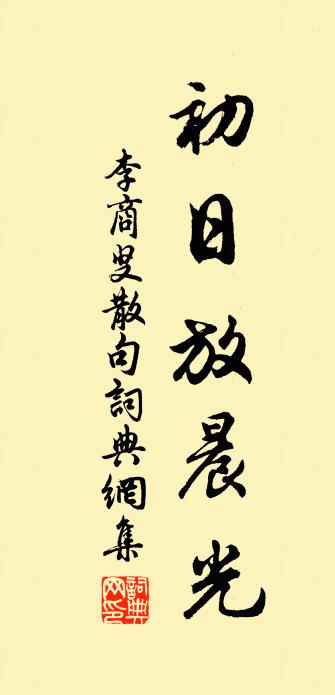 初日放晨光
李商叟散句詞典網集
詞典
网印